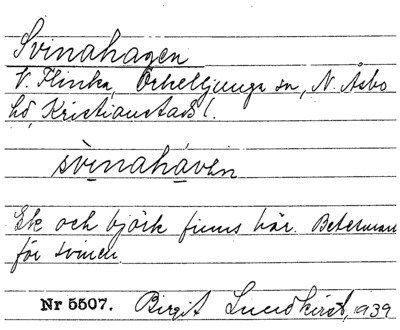 Svinahagen
V. Flinka, Örkelljunga sn, N. Åsbo
hd, Kristianstads l.
svinahávən
Ek och björk finns här. Betesmark
för svinen.
Nr 5507. Birgit Lundkvist, 1939